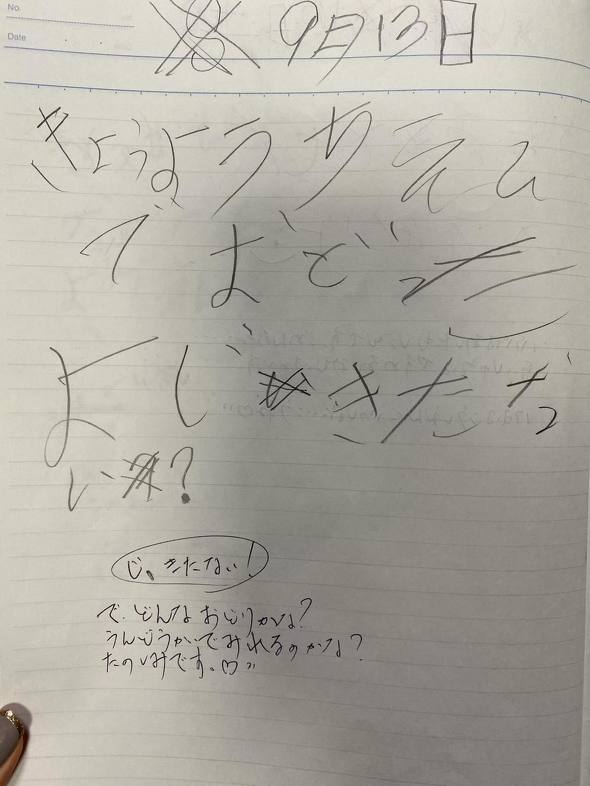 No.
Date 9月13日
きょうようちえん
でおどった
よじ きたな
い?
じ、きたない!
で、どんなおどりかな?
うんどうかいでみれるのかな?
たのしみです。♡